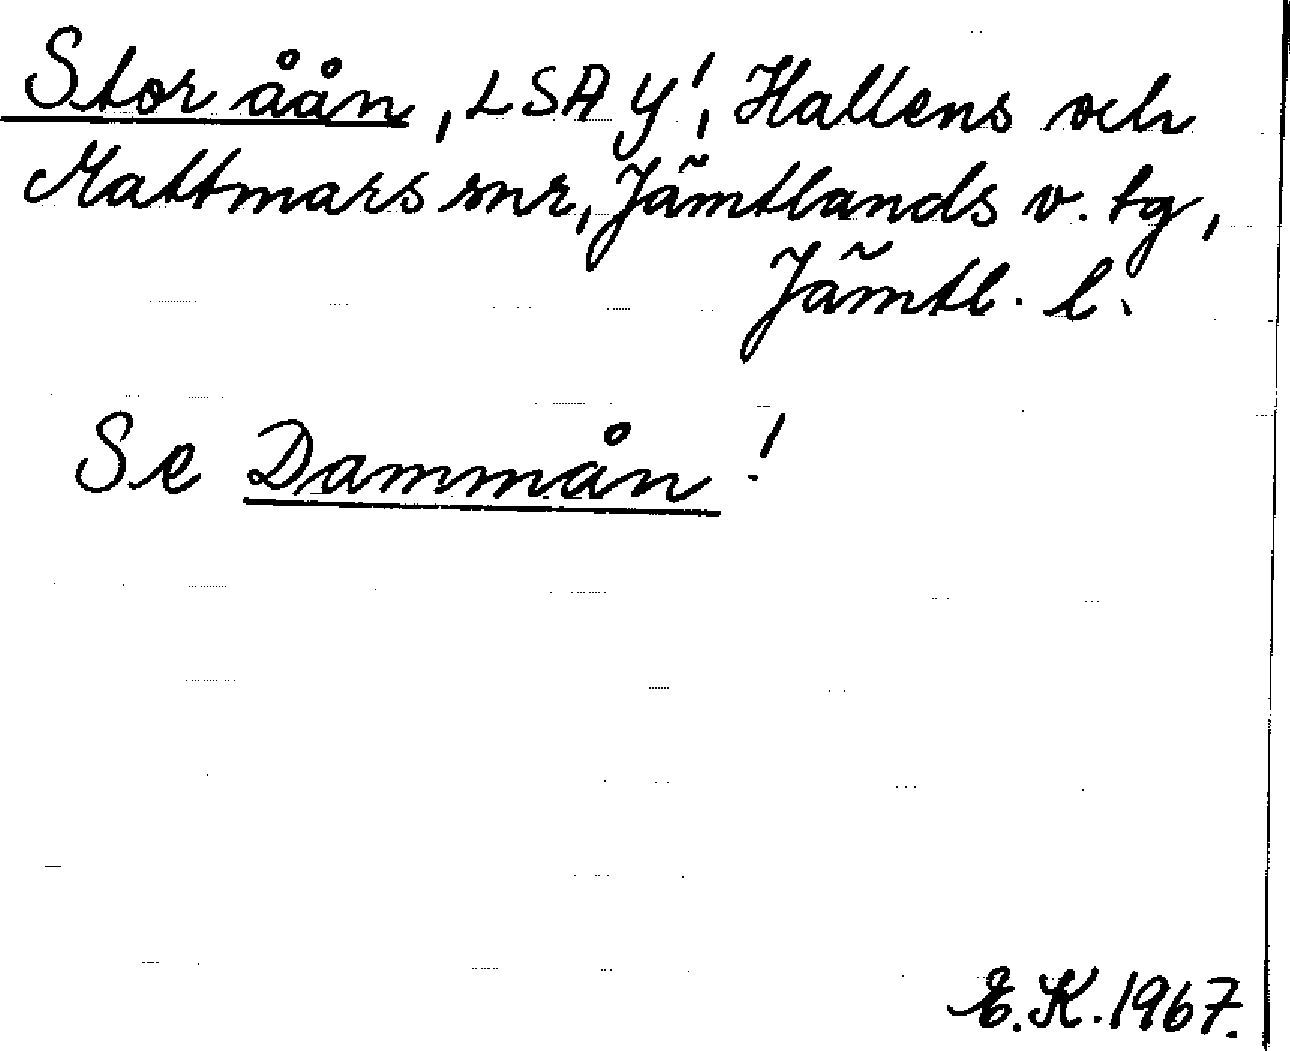 Stor åån, LSA y!, Hallens och
Mattmars snr, Jämtlands v. tg,
Jämtl. l.
Se Dammån!
E.K. 1967.